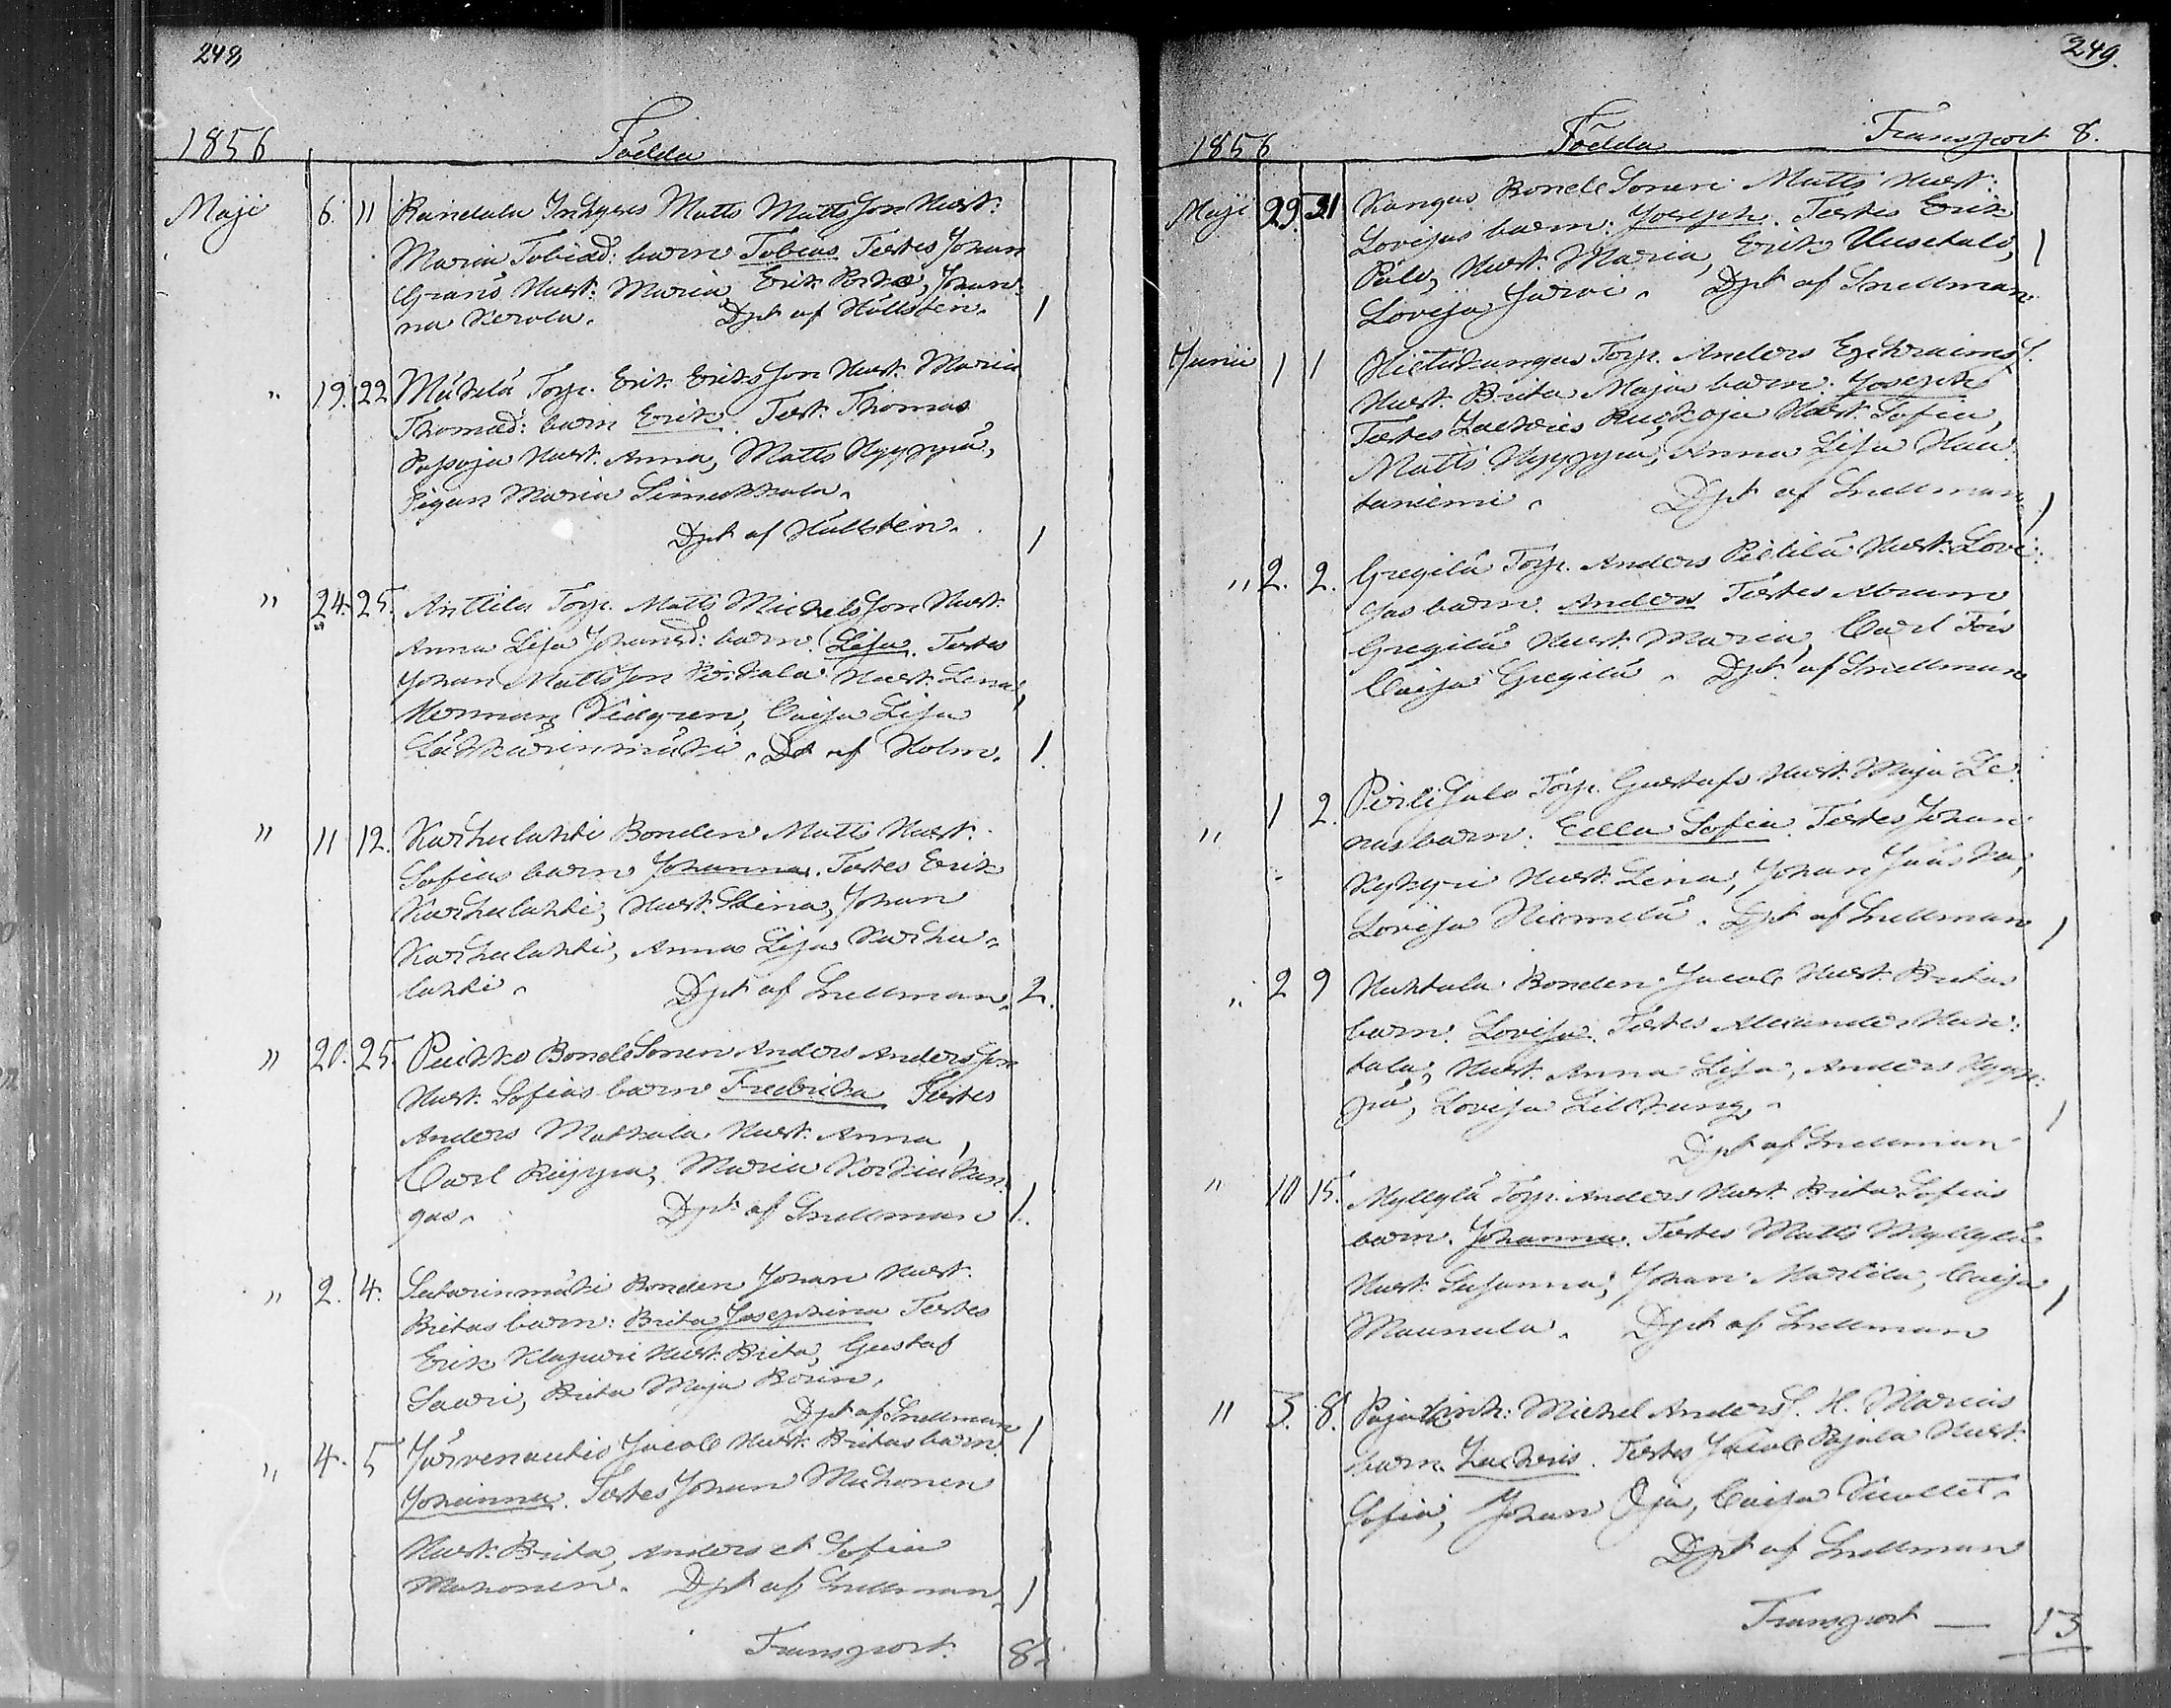 248
1856 Födda
Maji 6. 11 Randala Inhyses Matts Mattsson Hust:
Maria Tobiæd: barn Tobias Testes Johan
Granö Hust: Maria, Erik Porko, Johan-
na Kerola. Dpt af Hällsten. 1
" 19. 22 Mäkelä Torp. Erik Eriksson Hust. Maria
Thomæd: barn Erik. Test. Thomas
Passoja Hust. Anna, Matts Nyyppä,
Pigan Maria Simukkala.
Dpt af Hällsten. 1
" 24. 25. Anttila Torp. Matts Michelsson Hust.
Anna Lisa Johansd: barn. Lisa. Testes
Johan Mattsson Pirkala Hust. Lena,
Herman Vidgren, Caisa Lisa
Läkkärinmäki. Dt af Holm. 1.
" 11 12. Karhulahti Bonden Matts Hust.
Sofias barn Johanna. Testes Erik
Karhulahti, Hust. Stina, Johan
Karhulahti, Anna Lisa Karhu-
lahti. Dpt af Snellman. 2.
" 20. 25. Puikko Bondesonen Anders Andersson
Hust. Sofias barn Fredrika Testes
Anders Mattala Hust. Anna,
Carl Riippa, Maria Korkiakan-
gas. Dpt af Snellman 1.
" 2. 4. Sutarinmäki Bonden Johan Hust.
Britas barn: Brita Josephina Testes
Erik Klapuri Hust. Brita, Gustaf
Saari, Brita Maja Borin.
Dpt af Snellman 1
" 4. 5 Järvenautio Jacob Hust. Britas barn.
Johanna. Testes Johan Muhonen
Hust. Brita, Anders et Sofia
Muhonen. Dpt af Snellman. 1
Transport. 8.
249.
1856 Födda Transport 8.
Maji 29. 31 Kangas Bonde Sonen Matts Hust.
Lovisas barn. Joseph. Testes Erik
Palo, Hust. Maria, Erik Uusitalo, 1
Lovisa Jarvi. Dpt af Snellman
Junii 1 1 Hietakangas Torp. Anders Ephraims S.
Hust. Brita Majas barn. Joseph
Testes Zachris Ruskoja Hust. Sofia,
Matts Nyyppä, Anna Lisa Hau-
taniemi. Dpt af Snellman 1
" 2. 2. Gregilä Torp. Anders Pietilä Hust. Lovi-
sas barn. Anders Testes Abram
Gregilä Hust. Maria, Carl Fors
Caisa Gregilä. Dpt af Snellman
" 1 2. Gustafs Hust. Maja Le-
nas barn. Eella Sofia. Testes Johan
Kykyri Hust. Lena, Johan Jääskä,
Lovisa Niemelä. Dpt af Snellman 1
" 2 9 Huhtala Bonden Jacob Hust. Britas
barn. Lovisa. Testes Alexander Huh-
tala, Hust. Anna Lisa, Anders Nyyp-
pä, Lovisa Lillkung.
1
Dpt af Snellman
" 10 15. Myllylä Torp. Anders Hust. Brita Sofias
barn. Johanna. Testes Matts Myllylä
Hust. Susanna, Johan Marlila, Caisa
Maunula. Dpt af Snellman 1
" 3. 8. Michel Anders S. H. Marias
barn. Zachris. Testes Jacob Pajala Hust.
Sofia, Johan Oja, Caisa
Dpt af Snellman
Transport — 13